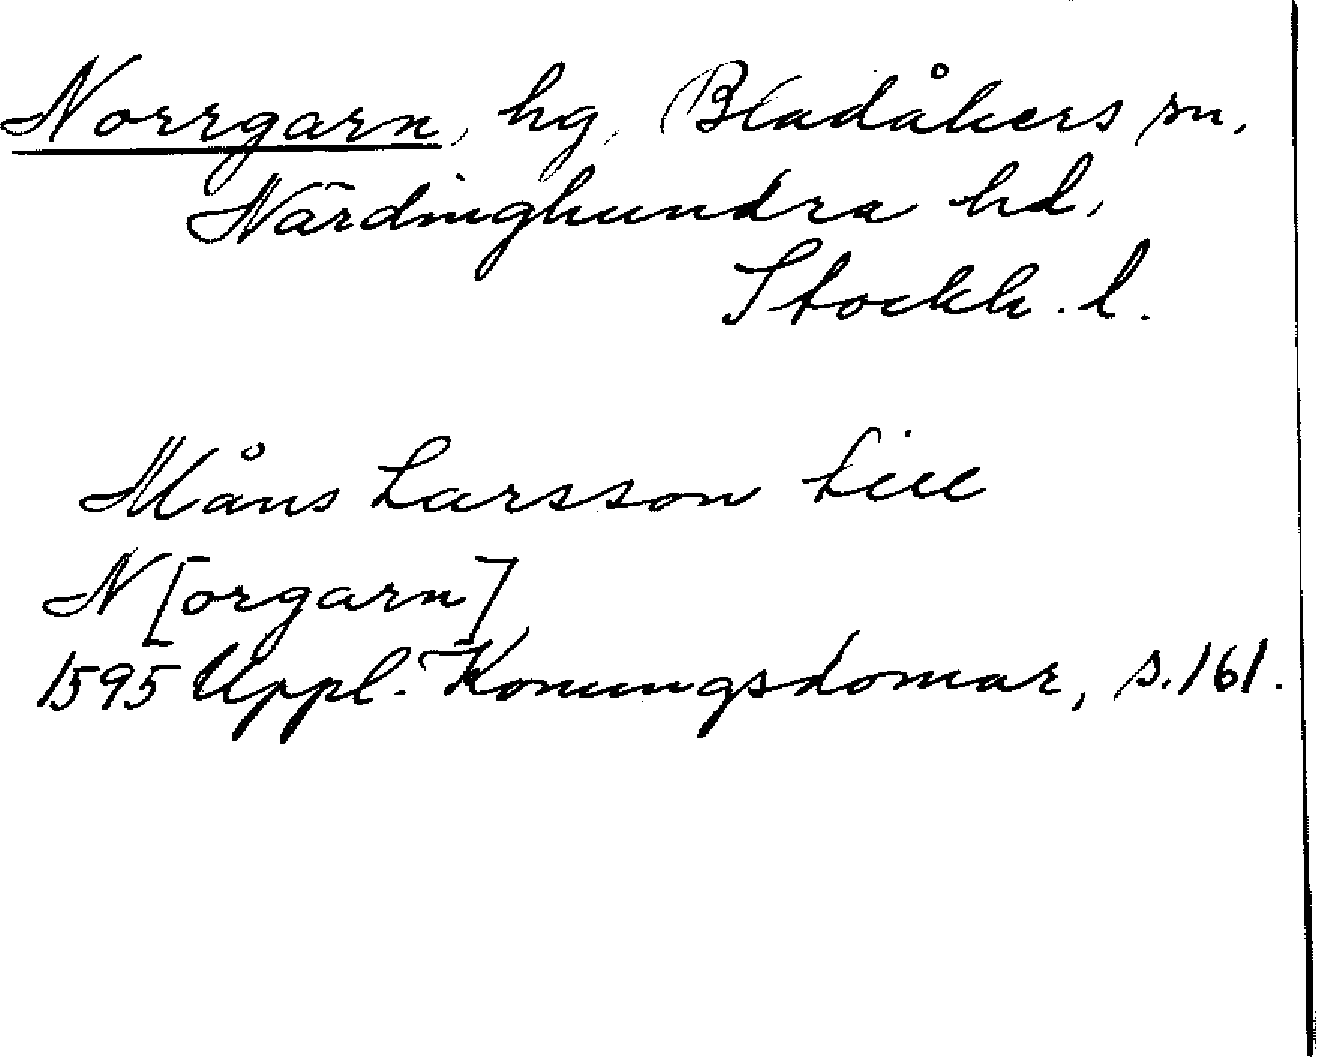 Norrgarn, hg, Bladåkers sn,
Närdinghundra hd,
Stockh. l.
Måns Larsson till
N[orgarn]
1595 Uppl. Konungsdomar, s. 161.